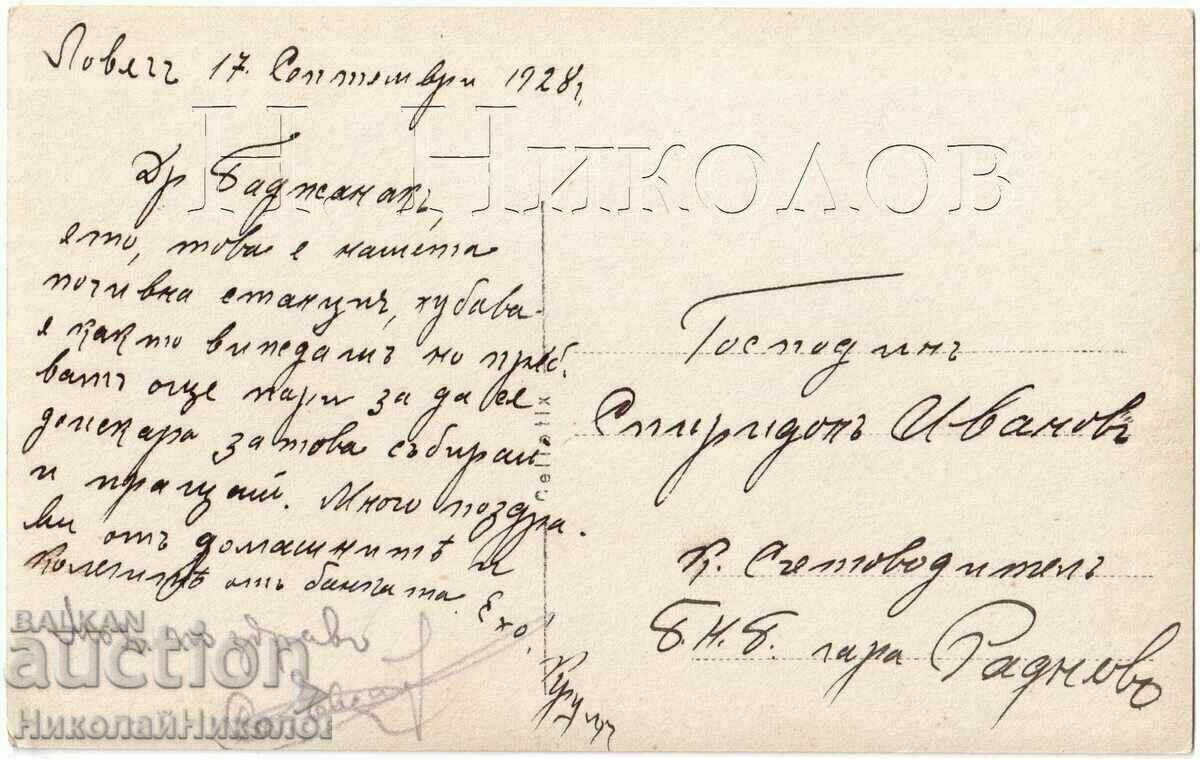 Ловечъ 17. Септември 1928г.
Н. Николов
Др Баджанакъ,
ето, това е нашета
почивна станция, хубава
е както виждашъ но трѣб.
ватъ още пари за да се
доискара затова събирай
и пращай. Много поздра.
ви отъ домашнитѣ и
колегитѣ отъ банката. Ехо!
поздравъ
Господинъ
Спиридонъ Ивановъ
К. Счетоводитель
Б.Н.Б. гара Раднево
Cellotix
BALKAN
auction
НиколайНиколов